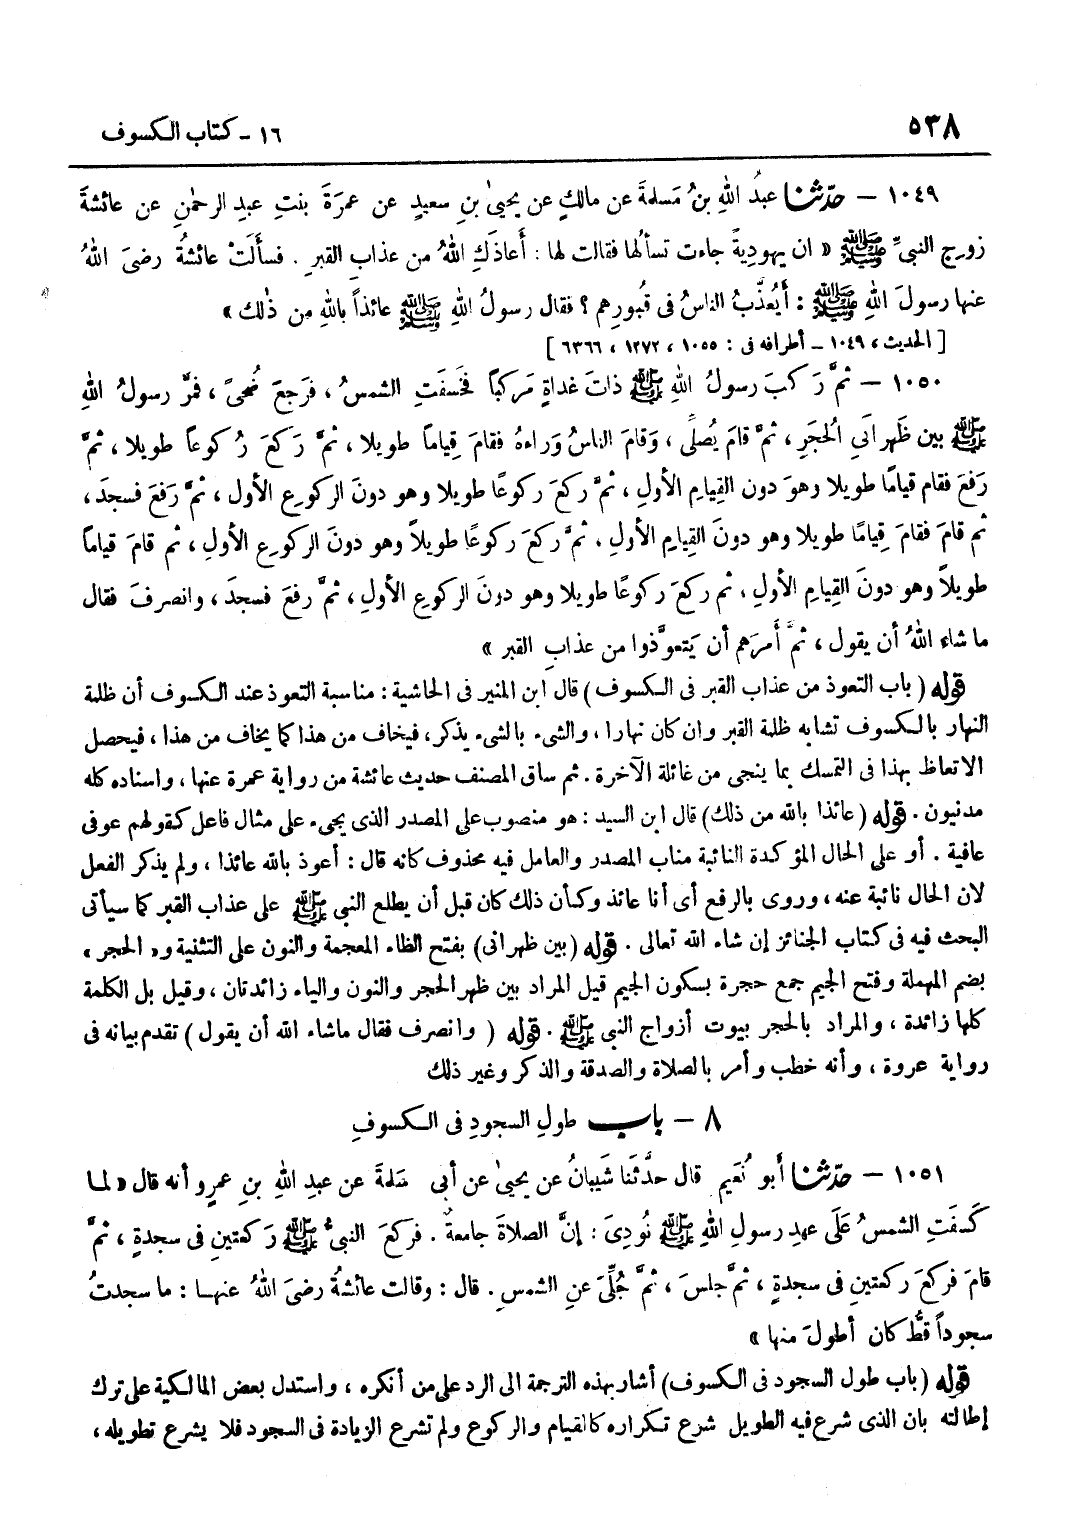 ٥٣٨
١٦ - كتاب الكسوف
١٠٤٩ – حدّثنا عبدُ اللهِ بنُ مَسلمةَ عن مالكٍ عن يحيىٰ بنِ سعيدٍ عن عمرَةَ بنتِ عبدِ الرحمٰنِ عن عائشةَ
زوجِ النبيِّ ﷺ « ان يهوديةً جاءت تسألُها فقالت لها : أعاذَكِ اللهُ من عذابِ القبرِ . فسألَتْ عائشةُ رضىَ اللهُ
عنها رسولَ اللهِ ﷺ : أَيُعذَّبُ الناسُ فى قُبورِهم ؟ فقال رسولُ اللهِ ﷺ عائذاً باللهِ مِن ذٰلك »
[ الحديث ١٠٤٩ ـ أطرافه فى : ١٠٥٥ ، ١٢٧٢ ، ٦٣٦٦ ]
١٠٥٠ – ثمَّ رَكبَ رسولُ اللهِ ﷺ ذاتَ غداةٍ مَركباً فخَسفَتِ الشمسُ ، فرَجعَ ضُحىً ، فمرَّ رسولُ اللهِ
ﷺ بين ظَهرانَىِ الحُجَرِ ، ثمَّ قامَ يُصلِّى ، وَقامَ الناسُ وَراءهُ فقامَ قِياماً طويلا ، ثمَّ رَكعَ رُكوعاً طويلا ، ثمَّ
رَفعَ فقام قيامًا طويلا وهوَ دون القِيامِ الأولِ ، ثمَّ ركعَ ركوعًا طويلا وهو دونَ الركوعِ الأول ، ثمَّ رَفعَ فسجدَ ،
ثم قامَ فقامَ قِيامًا طويلا وهو دونَ القِيامِ الأولِ . ثمَّ ركعَ ركوعًا طويلاً وهو دونَ الركوعِ الأولِ ، ثم قامَ قياماً
طويلاً وهو دونَ القِيامِ الأولِ . ثم ركعَ ركوعًا طويلا وهو دونَ الركوعِ الأولِ ، ثمَّ رفعَ فسجدَ ، وانصرفَ فقال
ما شاء اللهُ أن يقول ، ثمَّ أمرَهم أن يَتعوَّذوا من عذابِ القبر »
قوله ( باب التعوذ من عذاب القبر فى الكسوف ) قال ابن المنير فى الحاشية : مناسبة التعوذ عند الكسوف أن ظلمة
النهار بالكسوف تشابه ظلمة القبر وان كان نهارا ، والشىء بالشىء يذكر ، فيخاف من هذا كما يخاف من هذا ، فيحصل
الاتعاظ بهذا فى التمسك بما ينجى من غائلة الآخرة . ثم ساق المصنف حديث عائشة من رواية عمرة عنها ، واسناده كله
مدنيون . قوله ( عائذا بالله من ذلك ) قال ابن السيد : هو منصوب على المصدر الذى يجىء على مثال فاعل كقولهم عوفى
عافية . أو على الحال المؤكدة النائبة مناب المصدر والعامل فيه محذوف كانه قال : أعوذ بالله عائذا ، ولم يذكر الفعل
لان الحال نائبة عنه ، وروى بالرفع أى أنا عائذ وكأن ذلك كان قبل أن يطلع النبى ﷺ على عذاب القبر كما سيأتى
البحث فيه فى كتاب الجنائز إن شاء الله تعالى . قوله ( بين ظهرانى ) بفتح الظاء المعجمة والنون على التثنية و« الحجر »
بضم المهملة وفتح الجيم جمع حجرة بسكون الجيم قيل المراد بين ظهر الحجر والنون والياء زائدتان ، وقيل بل الكلمة
كلها زائدة ، والمراد بالحجر بيوت أزواج النبى ﷺ . قوله ( وانصرف فقال ماشاء الله أن يقول ) تقدم بيانه فى
رواية عروة ، وأنه خطب وأمر بالصلاة والصدقة والذكر وغير ذلك
٨ – باب طولِ السجودِ فى الكسوفِ
١٠٥١ – حدّثنا أبو نُعَيمٍ قال حدَّثَنا شَيبانُ عن يحيىٰ عن أبى سَلمةَ عن عبدِ اللهِ بنِ عمرٍو أنه قال « لما
كَسَفَتِ الشمسُ عَلَى عهدِ رسولِ اللهِ ﷺ نُودِىَ : إنَّ الصلاةَ جامعةٌ . فركعَ النبىُّ ﷺ رَكعتينِ فى سجدةٍ ، ثمَّ
قامَ فركعَ ركعتينِ فى سجدةٍ ، ثمَّ جلسَ ، ثمَّ جُلِّىَ عنِ الشمسِ . قال : وقالت عائشةُ رضىَ اللهُ عنها : ما سجدتُ
سجوداً قطُّ كان أطولَ منها »
قوله ( باب طول السجود فى الكسوف ) أشار بهذه الترجمة الى الرد على من أنكره ، واستدل بعض المالكية على ترك
إطالته بان الذى شرع فيه الطويل شرع تكراره كالقيام والركوع ولم تشرع الزيادة فى السجود فلا يشرع تطويله ،